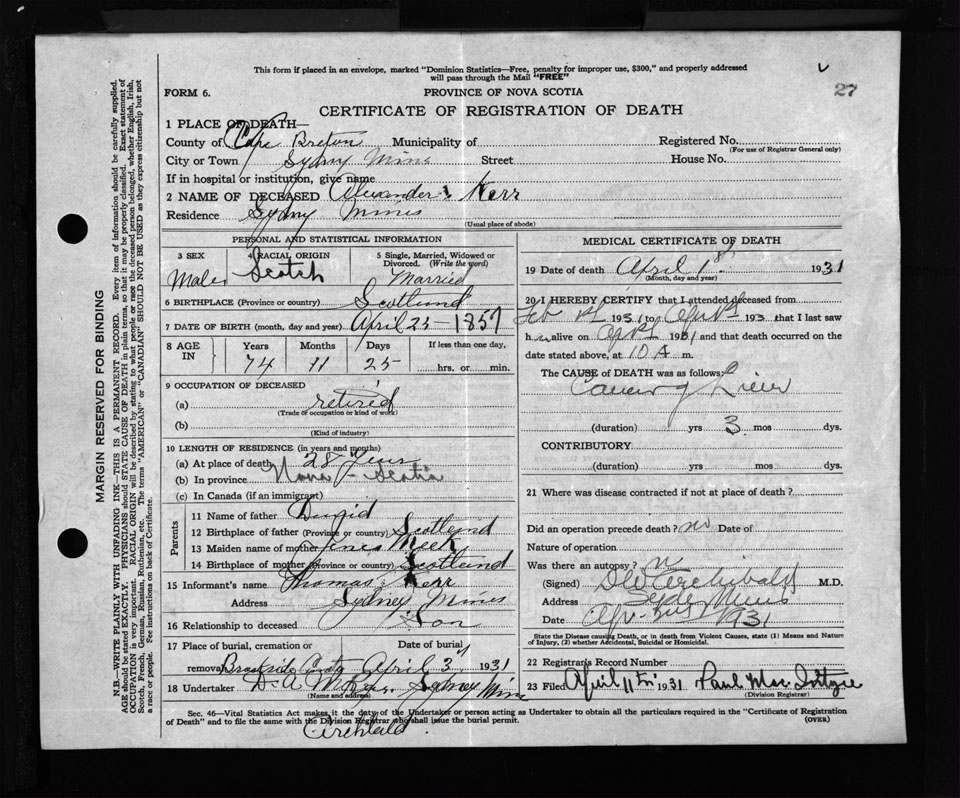 This form if placed in an envelope, marked "Dominion Statistics—Free, penalty for improper use, $300," and properly addressed
will pass through the Mail "FREE"
27
FORM 6.
PROVINCE OF NOVA SCOTIA
CERTIFICATE OF REGISTRATION OF DEATH
1 PLACE OF DEATH—
County of Cape Breton Municipality of Registered No.
(For use of Registrar General only)
City or Town Sydney Mines Street House No.
If in hospital or institution, give name
2 NAME OF DECEASED Alexander Kerr
Residence Sydney Mines
(Usual place of abode)
PERSONAL AND STATISTICAL INFORMATION
3 SEX 4 RACIAL ORIGIN 5 Single, Married, Widowed or
Divorced. (Write the word)
Male Scotch Married
6 BIRTHPLACE (Province or country) Scotland
7 DATE OF BIRTH (month, day and year) April 25 - 1857
8 AGE IN Years Months Days If less than one day,
74 11 25 hrs. or min.
9 OCCUPATION OF DECEASED
(a) retired
(Trade or occupation or kind of work)
(b)
(Kind of industry)
10 LENGTH OF RESIDENCE (in years and months)
(a) At place of death 28 Years
(b) In province Nova - Scotia
(c) In Canada (if an immigrant)
Parents
11 Name of father David
12 Birthplace of father (Province or country) Scotland
13 Maiden name of mother Meek
14 Birthplace of mother (Province or country) Scotland
15 Informant's name Thomas Kerr
Address Sydney Mines
16 Relationship to deceased Son
17 Place of burial, cremation or removal Date of burial
April 3 1931
18 Undertaker Sydney Mines
(Name and address)
MEDICAL CERTIFICATE OF DEATH
19 Date of death April 1st 1931
(Month, day and year)
20 I HEREBY CERTIFY that I attended deceased from
Feb 1931 to April 193 that I last saw
h alive on 1931 and that death occurred on the
date stated above, at 10 A m.
The CAUSE of DEATH was as follows:
Cancer of Liver
(duration) yrs 3 mos dys.
CONTRIBUTORY
(duration) yrs mos dys.
21 Where was disease contracted if not at place of death?
Did an operation precede death? no Date of
Nature of operation
Was there an autopsy?
(Signed) Archibald M.D.
Address Sydney Mines
Date Apr. 1931
State the Disease causing Death, or in death from Violent Causes, state (1) Means and Nature
of Injury, (2) whether Accidental, Suicidal or Homicidal.
22 Registrar's Record Number
23 Filed April 11th 1931
(Division Registrar)
Sec. 46—Vital Statistics Act makes it the duty of the Undertaker or person acting as Undertaker to obtain all the particulars required in the "Certificate of Registration
of Death" and to file the same with the Division Registrar who shall issue the burial permit. (OVER)
Archibald
MARGIN RESERVED FOR BINDING
N.B.—WRITE PLAINLY WITH UNFADING INK—THIS IS A PERMANENT RECORD. Every item of information should be carefully supplied.
AGE should be stated EXACTLY. PHYSICIANS should STATE CAUSE OF DEATH in plain terms, so that it may be properly classified. Exact statement of
OCCUPATION is very important. RACIAL ORIGIN will be described by stating to what people or race the deceased person belonged, whether English, Irish,
Scotch, French, German, Russian, Ruthenian, etc. The terms "AMERICAN" or "CANADIAN" SHOULD NOT BE USED as they express citizenship but not
a race or people. See instructions on back of Certificate.